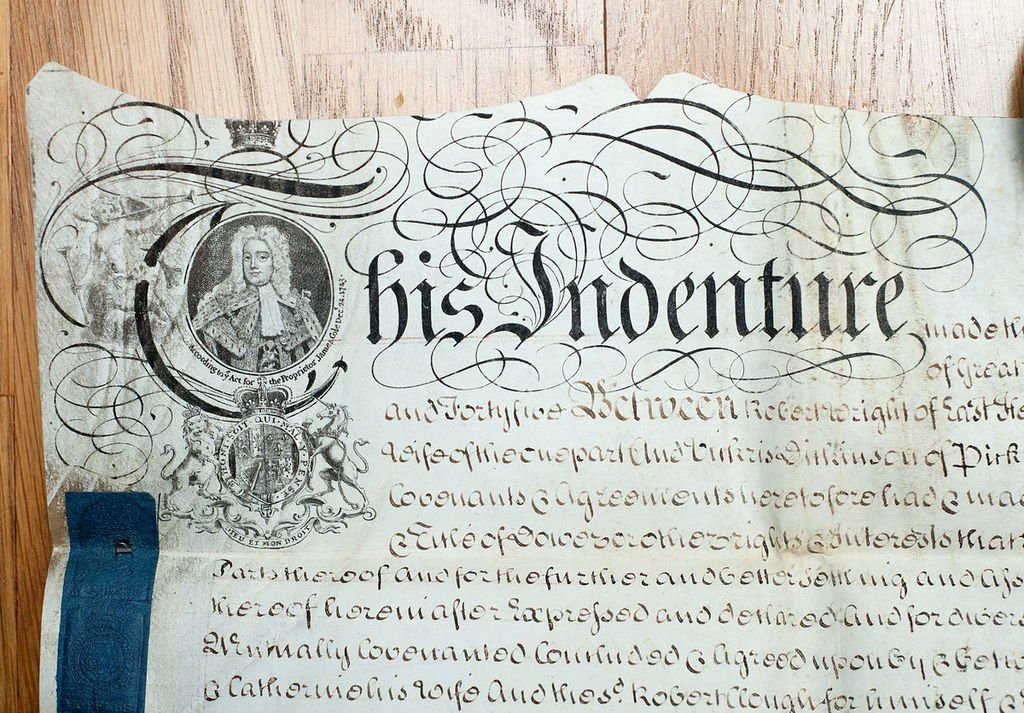 This Indenture, made th
According to ye Act for ye the Proprietor James Cole Dec. 24. 1743.
of Great
and Forty five Between Robert Wright of East He
Wife of the one part And Vickris Dickinson of Pick
Covenants & Agreements heretofore had & mad
& Title of Dower or other rights & Interests that
HONI SOIT QUI MAL Y PENSE
DIEU ET MON DROIT
Parts thereof And for the further and better settling and Ass
thereof herein after Expressed and declared And for divers
Mutually Covenanted Concluded & Agreed upon by & Betw
& Catherine his Wife And the sd. Robert Clough for himself &